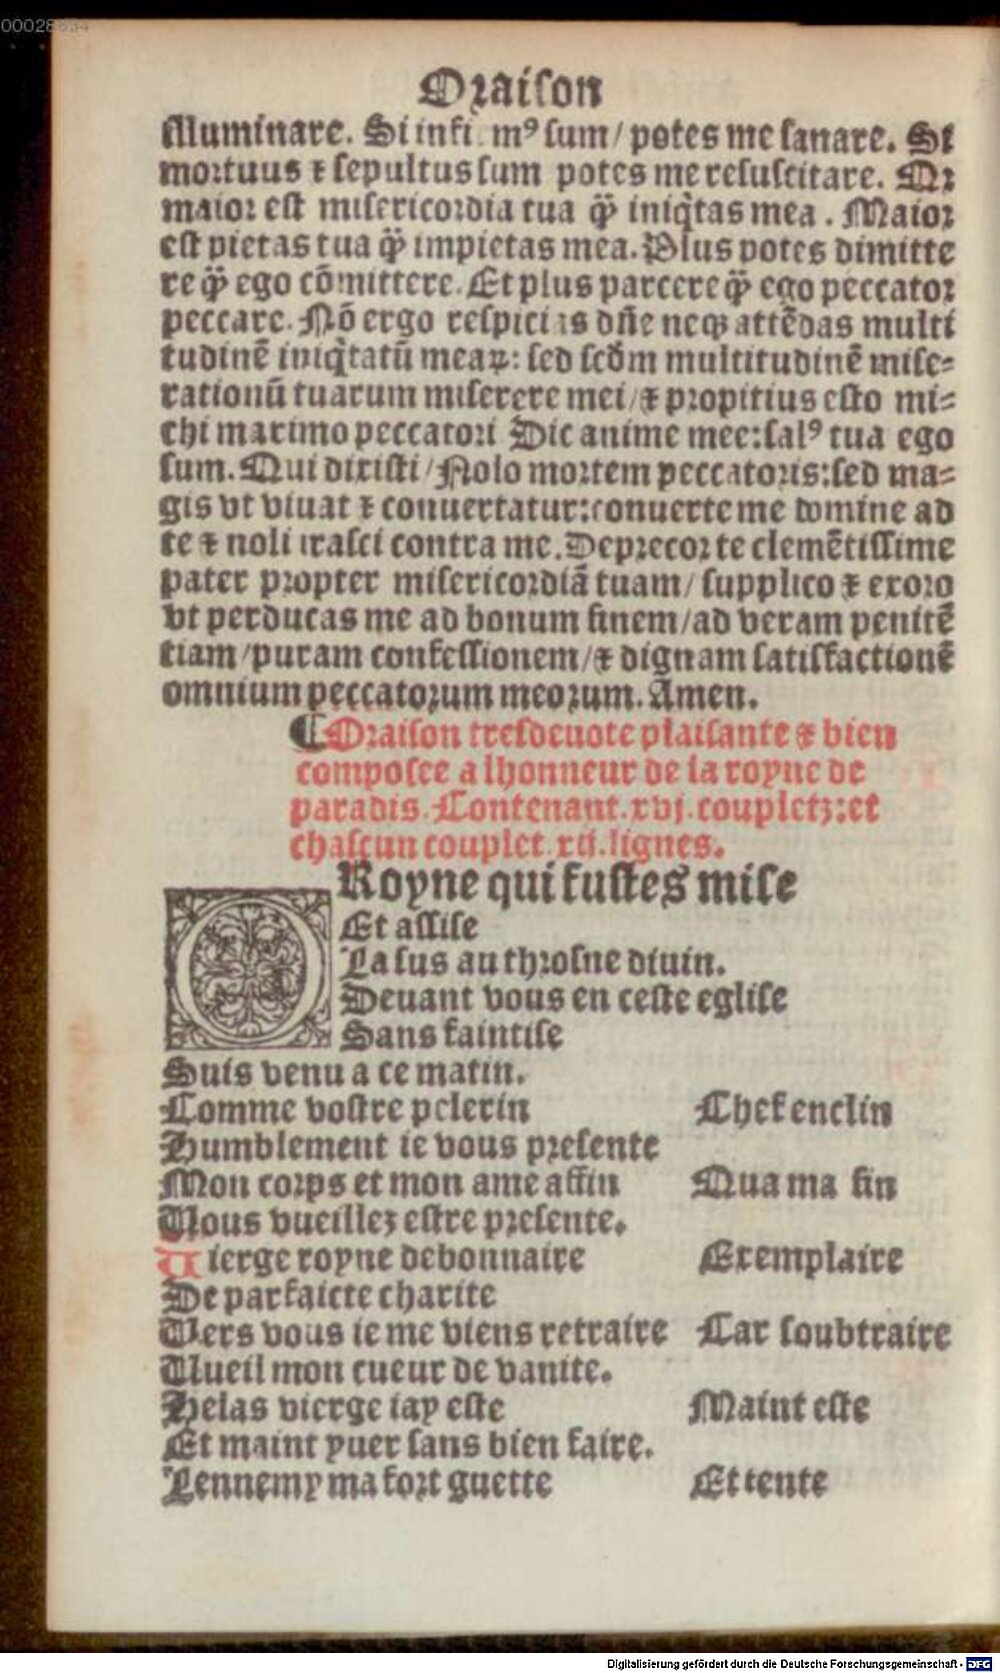 00028634
Oraison
illuminare. Si infi mꝰ sum/ potes me sanare. Si
mortuus ⁊ sepultus sum potes me resuscitare. Qr
maior est misericordia tua ꝙ̃ iniq̇tas mea. Maior
est pietas tua ꝙ̃ impietas mea. Plus potes dimitte
re ꝙ̃ ego cõmittere. Et plus parcere ꝙ̃ ego peccator
peccare. Nõ ergo respicias dñe neqꝫ attẽdas multi
tudinẽ iniq̇tatũ meaꝝ: sed scdm̃ multitudinẽ mise-
rationũ tuarum miserere mei/⁊ propitius esto mi-
chi maximo peccatori Dic anime mee: salꝰ tua ego
sum. Qui dixisti/Nolo mortem peccatoris: sed ma-
gis vt viuat ⁊ conuertatur: conuerte me domine ad
te ⁊ noli irasci contra me. Deprecor te clemẽtissime
pater propter misericordiã tuam/ supplico ⁊ exoro
vt perducas me ad bonum finem/ad veram penitẽ
tiam/puram confessionem/⁊ dignam satisfactionẽ
omnium peccatorum meorum. Amen.
¶Oraison tresdeuote plaisante ⁊ bien
composee a lhonneur de la royne de
paradis. Contenant. xvj. coupletz: et
chascun couplet. xii. lignes.
O Royne qui fustes mise
Et assise
La sus au throsne diuin.
Deuant vous en ceste eglise
Sans faintise
Suis venu a ce matin.
Comme vostre pelerin Chef enclin
Humblement ie vous presente
Mon corps et mon ame affin Qua ma fin
Vous vueillez estre presente.
Vierge royne debonnaire Exemplaire
De parfaicte charite
Vers vous ie me viens retraire Car soubtraire
Vueil mon cueur de vanite.
Helas vierge iay este Maint este
Et maint yuer sans bien faire.
Lennemy ma fort guette Et tente
Digitalisierung gefördert durch die Deutsche Forschungsgemeinschaft - DFG